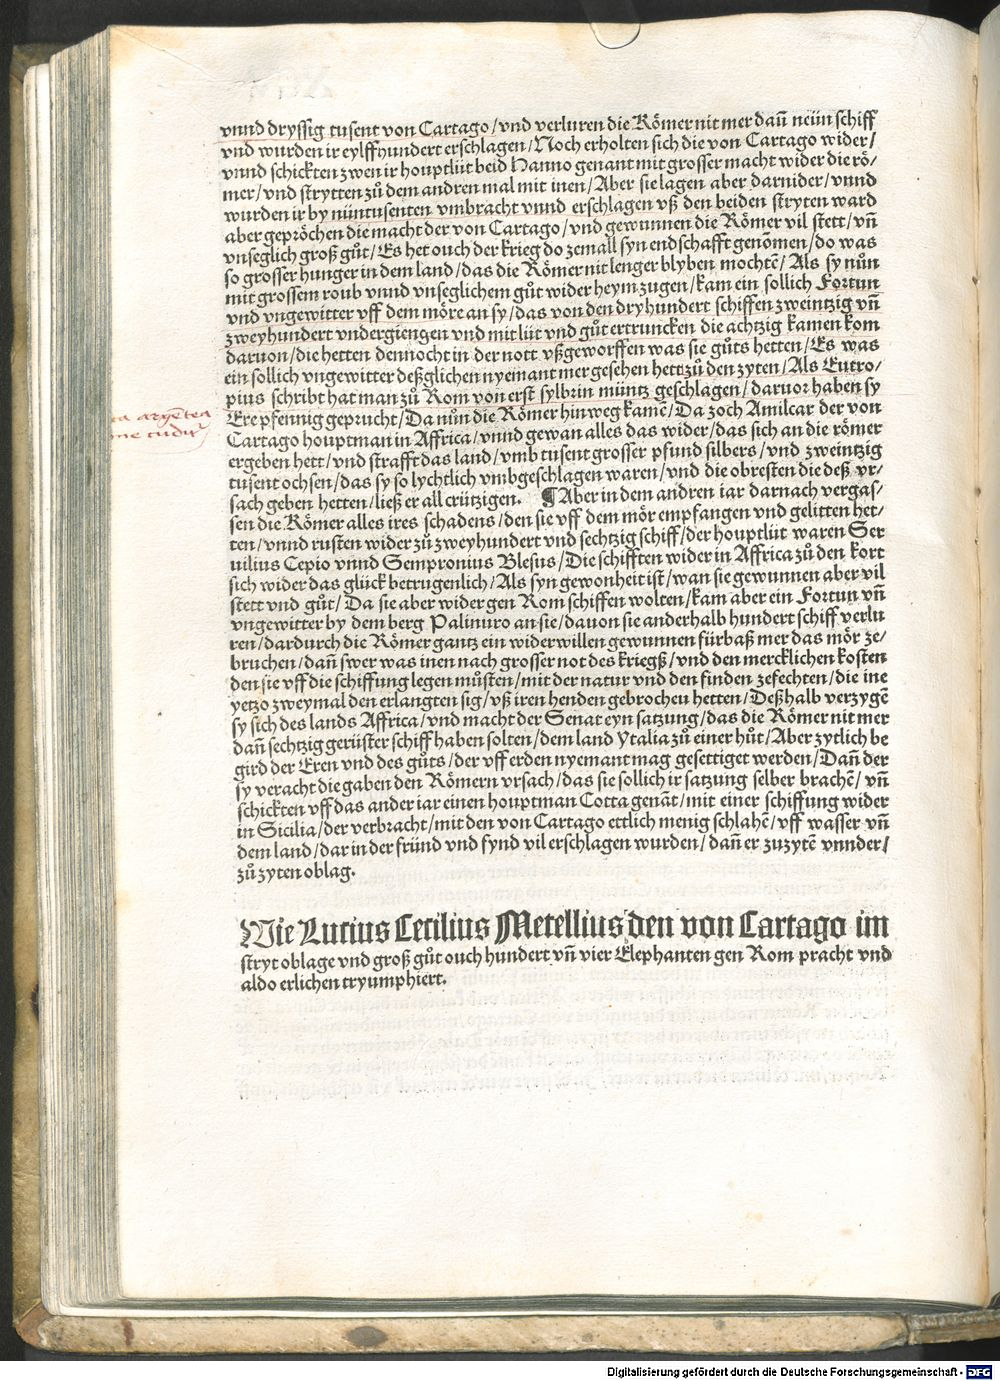 vnnd dryssig tusent von Cartago / vnd verluren die Rômer nit mer dañ neün schiff
vnd wurden ir eylffhundert erschlagen / Noch erholten sich die von Cartago wider /
vnnd schickten zwen ir houptlüt beid Hanno genant mit grosser macht wider die rô-
mer / vnd strytten zů dem andren mal mit inen / Aber sie lagen aber darnider / vnnd
wurden ir by nüntusenten vmbracht vnnd erschlagen vß den beiden stryten ward
aber geprôchen die macht der von Cartago / vnd gewunnen die Rômer vil stett / vñ
vnseglich groß gůt / Es het ouch der krieg do zemall syn endschafft genõmen / do was
so grosser hunger in dem land / das die Rômer nit lenger blyben mochtẽ / Als sy nůn
mit grossem roub vnnd vnseglichem gůt wider heym zugen / kam ein sollich Fortun
vnd vngewitter vff dem môre an sy / das von den dryhundert schiffen zweintzig vñ
zweyhundert vndergiengen vnd mit lüt vnd gůt ertruncken die achtzig kamen kom
daruon / die hetten dennocht in der nott vßgeworffen was sie gůts hetten / Es was
ein sollich vngewitter deßglichen nyemant mer gesehen hett zů den zyten / Als Eutro-
pius schribt hat man zů Rom von erst sylbrin müntz geschlagen / daruor haben sy
Ere pfennig geprucht / Da nůn die Rômer hinweg kamẽ / Da zoch Amilcar der von
Cartago houptman in Affrica / vnnd gewan alles das wider / das sich an die rômer
ergeben hett / vnd strafft das land / vmb tusent grosser pfund silbers / vnd zweintzig
tusent ochsen / das sy so lychtlich vmbgeschlagen waren / vnd die obresten die deß vr-
sach geben hetten / ließ er all crützigen. ¶ Aber in dem andren iar darnach vergas-
sen die Rômer alles ires schadens / den sie vff dem môr empfangen vnd gelitten het-
ten / vnnd rusten wider zů zweyhundert vnd sechtzig schiff / der houptlüt waren Ser
uilius Cepio vnnd Sempronius Blesus / Die schifften wider in Affrica zů den kort
sich wider das glück betrugenlich / Als syn gewonheit ist / wan sie gewunnen aber vil
stett vnd gůt / Da sie aber wider gen Rom schiffen wolten / kam aber ein Fortun vñ
vngewitter by dem berg Palinuro an sie / dauon sie anderhalb hundert schiff verlu
ren / dardurch die Rômer gantz ein widerwillen gewunnen fürbaß mer das môr ze-
bruchen / dañ swer was inen nach grosser not des kriegß / vnd den mercklichen kosten
den sie vff die schiffung legen můsten / mit der natur vnd den finden zefechten / die ine
yetzo zweymal den erlangten sig / vß iren henden gebrocheu hetten / Deßhalb verzygẽ
sy sich des lands Affrica / vnd macht der Senat eyn satzung / das die Rômer nit mer
dañ sechtzig gerüster schiff haben solten / dem land Ytalia zů einer hůt / Aber zytlich be
gird der Eren vnd des gůts / der vff erden nyemant mag gesettiget werden / Dañ der
sy veracht die gaben den Rômern vrsach / das sie sollich ir satzung selber brachẽ / vñ
schickten vff das ander iar einen houptman Cotta genãt / mit einer schiffung wider
in Sicilia / der verbracht / mit den von Cartago ettlich menig schlahẽ / vff wasser vñ
dem land / dar in der fründ vnd fynd vil erschlagen wurden / dañ er zuzytẽ vnnder /
zů zyten oblag.
Wie Lucius Cecilius Metellius den von Cartago im
stryt oblage vnd groß gůt ouch hundert vñ vier Elephanten gen Rom pracht vnd
aldo erlichen tryumphiert.
Digitalisierung gefördert durch die Deutsche Forschungsgemeinschaft - DFG